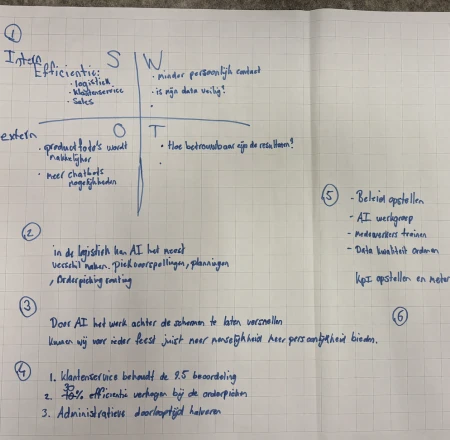 1
Intern
S
W
Efficientie:
· logistiek
· klantenservice
· Sales
· minder persoonlijk contact
· is mijn data veilig?
extern
O
T
· productfoto's wordt makkelijker
· meer chatbots mogelijkheden
· Hoe betrouwbaar zijn de resultaten?
2
in de logistiek kan AI het meest
verschil maken. piekvoorspellingen, planningen
, orderpicking routing
3
Door AI het werk achter de schermen te laten versnellen
kunnen wij voor ieder feest juist meer menselijkheid meer persoonlijkheid bieden.
4
1. klantenservice behoudt de 9.5 beoordeling
2. 30% efficientie verhogen bij de orderpicken
3. Administratieve doorlooptijd halveren
5
- Beleid opstellen
- AI werkgroep
- medewerkers trainen
- Data kwaliteit ordenen
kpi opstellen en meten
6